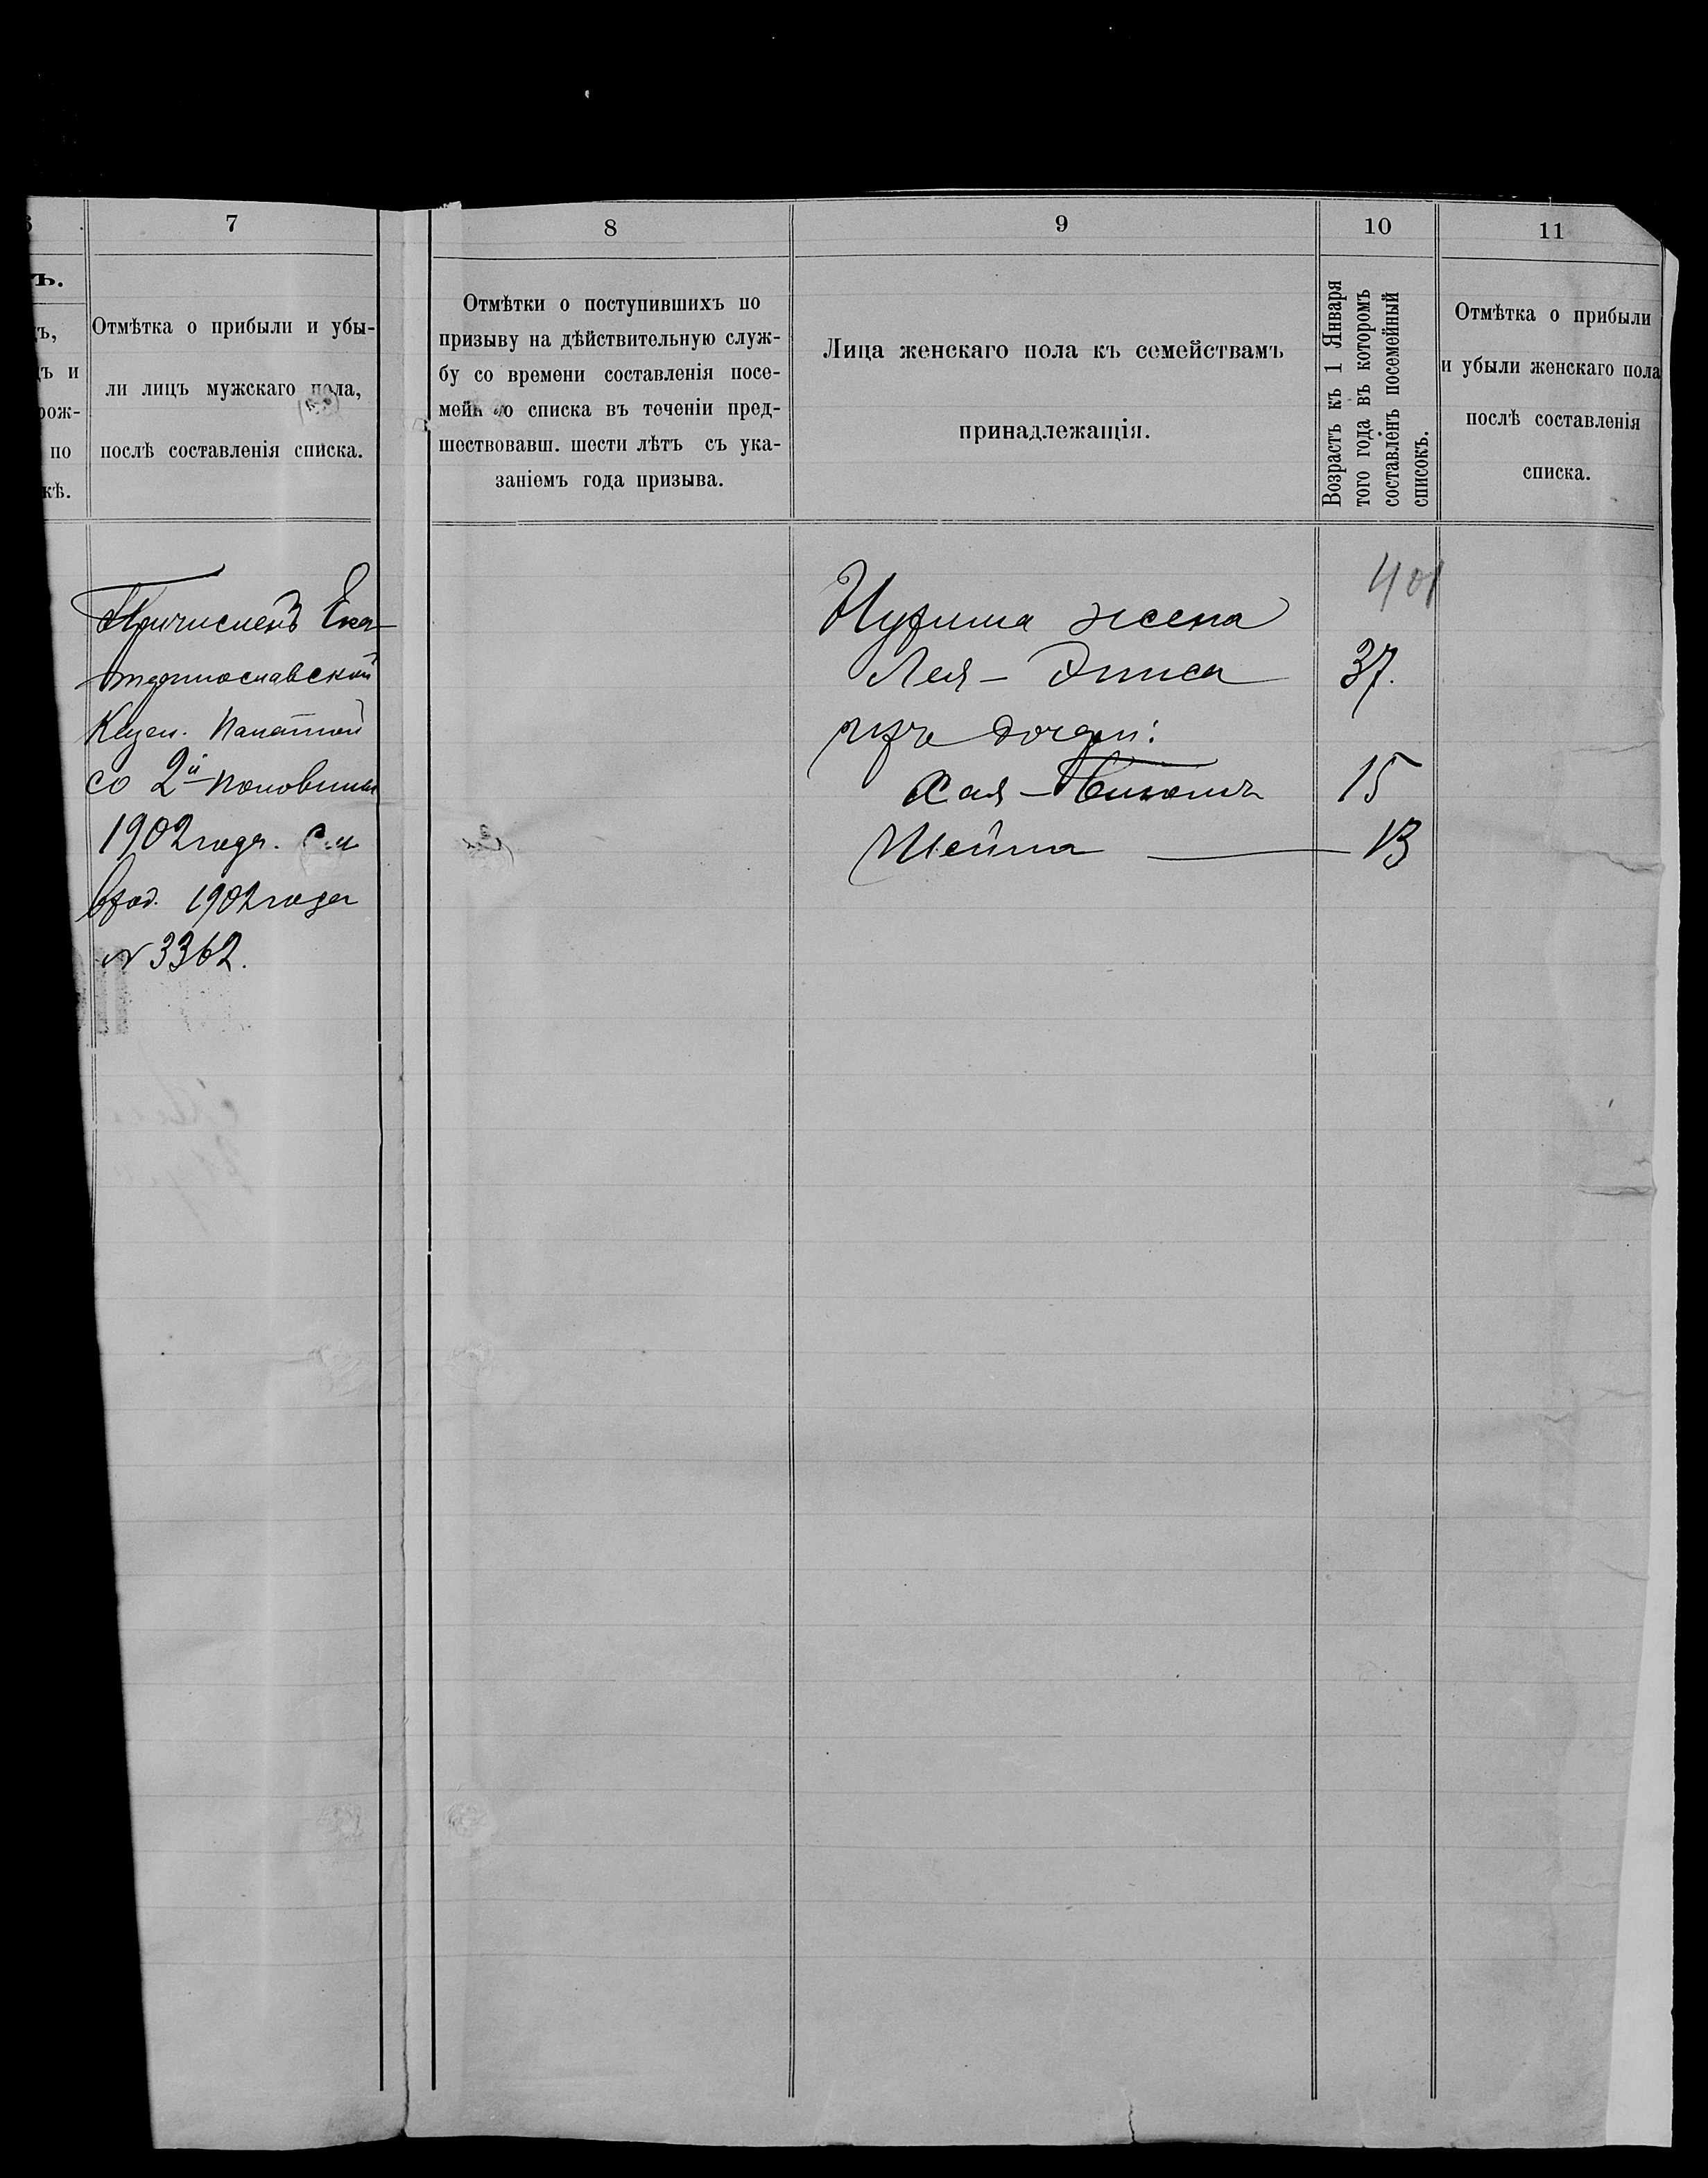 7
8
9
10
11
ъ.
ъ,
ъ и
рож-
по
кѣ.
Отмѣтка о прибыли и убы-
ли лицъ мужскаго пола,
послѣ составленія списка.
Отмѣтки о поступившихъ по
призыву на дѣйствительную служ-
бу со времени составленія посе-
мейнаго списка въ теченіи пред-
шествовавш. шести лѣтъ съ ука-
заніемъ года призыва.
Лица женскаго пола къ семействамъ
принадлежащія.
Возрастъ къ 1 Января
того года въ которомъ
составленъ посемейный
списокъ.
Отмѣтка о прибыли
и убыли женскаго пола
послѣ составленія
списка.
Причисленъ Ека-
теринославской
Казен. Палатой
со 2й половины
1902 года. См
вход. 1902 года
№ 3362.
401
жена
Лея - 37.
дочери:
Хая - 15
Шейна — 13